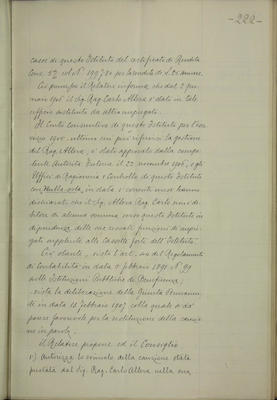 -222-
casse di questo Istituto del certificato di Rendita
Cons. 5% col N° 199780 per la rendita di L. 25 annue.
Ciò premesso il Relatore informa che dal 2 gen-
naio 1906 il Sig. Rag. Carlo Allera è stato in tale
ufficio sostituito da altro impiegato.
Il Conto Consuntivo di questo Istituto per l'eser-
cizio 1905 ultimo cui può riferirsi la gestione
del Rag. Allera, è stato approvato dalla compe-
tente Autorità Tutoria il 22 novembre 1906, e gli
Uffici di Ragioneria e Controllo di questo Istituto
con Nulla osta, in data 2 corrente mese hanno
dichiarato che il Sig. Allera Rag. Carlo non è de-
bitore di alcuna somma verso questo Istituto in
dipendenza delle cessate funzioni di impie-
gato supplente alle Cassette forti dell'Istituto.
Ciò stante, visto l'art. del Regolamento
di Contabilità in data 5 febbraio 1891 N° 99
sulle Istituzioni Pubbliche di Beneficenza,
vista la deliberazione della Giunta Permanen-
te in data 18 febbraio 1907 colla quale si dà
parere favorevole per la restituzione della cauzio-
ne in parola,
Il Relatore propone ed il Consiglio
1°) Autorizza lo svincolo della cauzione stata
prestata dal Sig. Rag. Carlo Allera nella sua